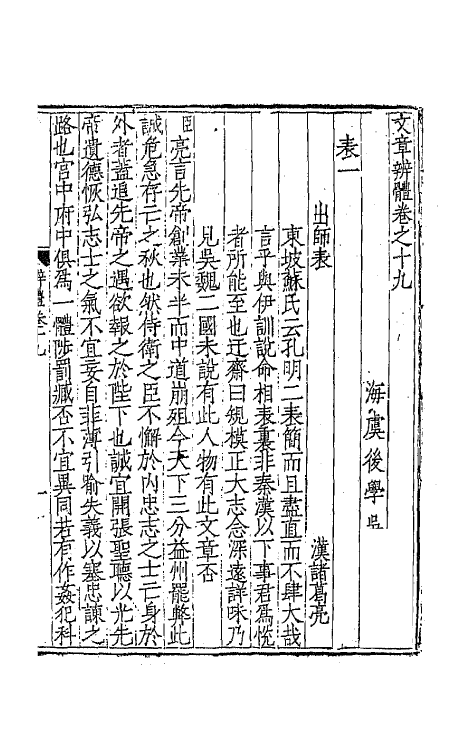 文章辨體卷之十九
海虞後學吳
表一
出師表　漢諸葛亮
東坡蘇氏云孔明二表簡而且盡直而不肆大哉
言乎與伊訓說命相表裏非秦漢以下事君爲恱
者所能至也迂齋曰規模正大志念深遠詳味乃
見吳魏二國未說有此人物有此文章否
臣亮言先帝創業未半而中道崩殂今天下三分益州罷弊此
誠危急存亡之秋也然侍衛之臣不懈於內忠志之士亡身於
外者蓋追先帝之遇欲報之於陛下也誠宜開張聖聽以光先
帝遺德恢弘志士之氣不宜妄自菲薄引喻失義以塞忠諫之
路也宮中府中俱爲一體陟罰臧否不宜異同若有作姦犯科
辨體卷十九　一